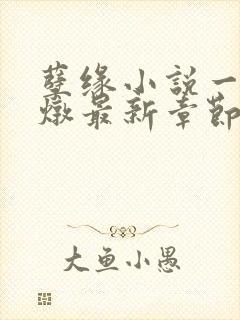 孽缘小説一
燉最新章節
大鱼小愚